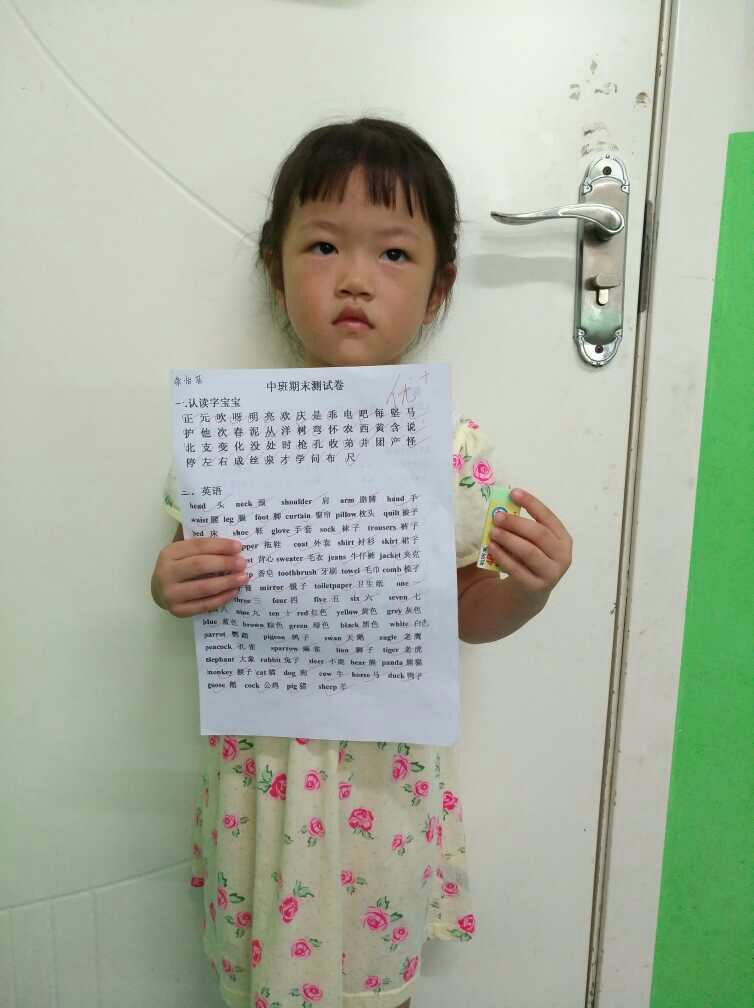 中班期末测试卷
优+
一.认读字宝宝
正 元 吹 呀 明 亮 欢 庆 是 乖 电 吧 每 坚 马
护 他 次 春 泥 丛 洋 树 弯 怀 农 西 黄 含 说
北 支 变 化 没 处 时 枪 孔 收 弟 井 团 严 怪
停 左 右 成 丝 泉 才 学 问 布 尺
二、英语
head 头 neck 颈 shoulder 肩 arm 胳膊 hand 手
waist 腰 leg 腿 foot 脚 curtain 窗帘 pillow 枕头 quilt 被子
bed 床 shoe 鞋 glove 手套 sock 袜子 trousers 裤子
拖鞋 coat 外套 shirt 衬衫 skirt 裙子
背心 sweater 毛衣 jeans 牛仔裤 jacket 夹克
香皂 toothbrush 牙刷 towel 毛巾 comb 梳子
mirror 镜子 toiletpaper 卫生纸 one 一
three 三 four 四 five 五 six 六 seven 七
八 nine 九 ten 十 red 红色 yellow 黄色 grey 灰色
blue 蓝色 brown 棕色 green 绿色 black 黑色 white 白色
parrot 鹦鹉 pigeon 鸽子 swan 天鹅 eagle 老鹰
peacock 孔雀 sparrow 麻雀 lion 狮子 tiger 老虎
elephant 大象 rabbit 兔子 deer 小鹿 bear 熊 panda 熊猫
monkey 猴子 cat 猫 dog 狗 cow 牛 horse 马 duck 鸭子
goose 鹅 cock 公鸡 pig 猪 sheep 羊